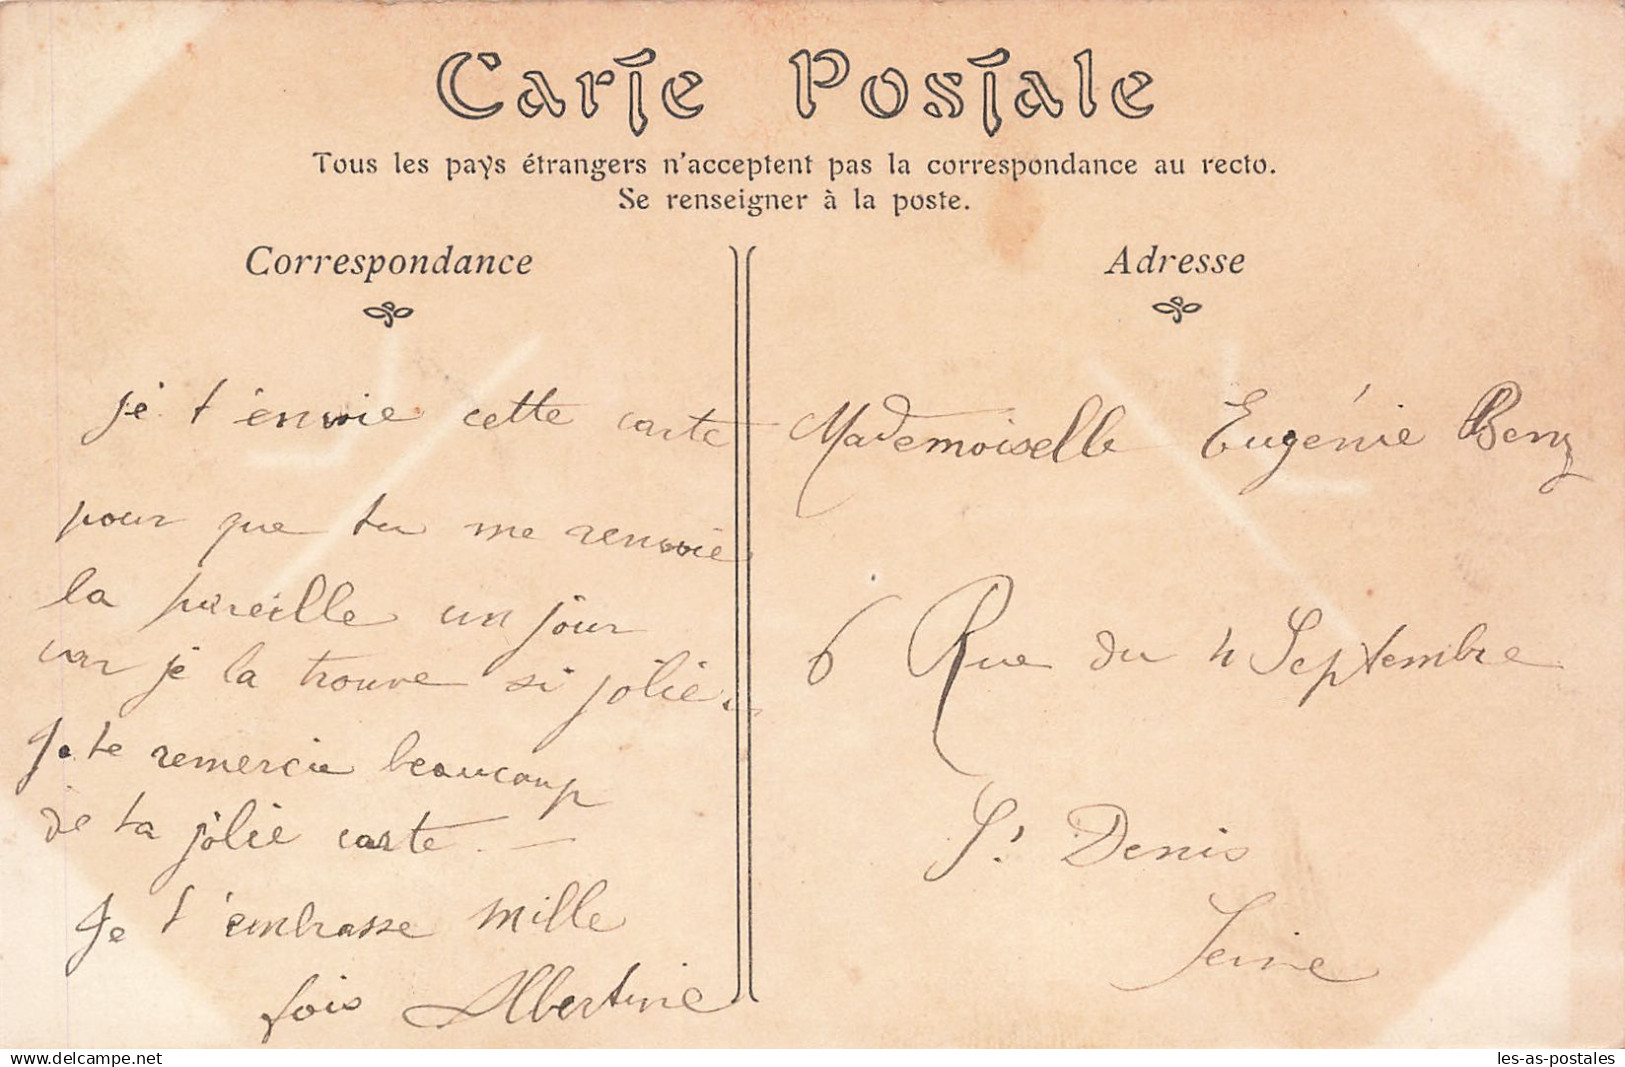 Carte Postale
Tous les pays étrangers n'acceptent pas la correspondance au recto.
Se renseigner à la poste.
Correspondance
je t'envoie cette carte
pour que tu me renvoie
la pareille un jour
car je la trouve si jolie.
Je te remercie beaucoup
de ta jolie carte. —
Je t'embrasse mille
fois Albertine
Adresse
Mademoiselle Eugénie Benz
6 Rue du 4 Septembre
St Denis
Seine
delcampe.net
les-as-postales